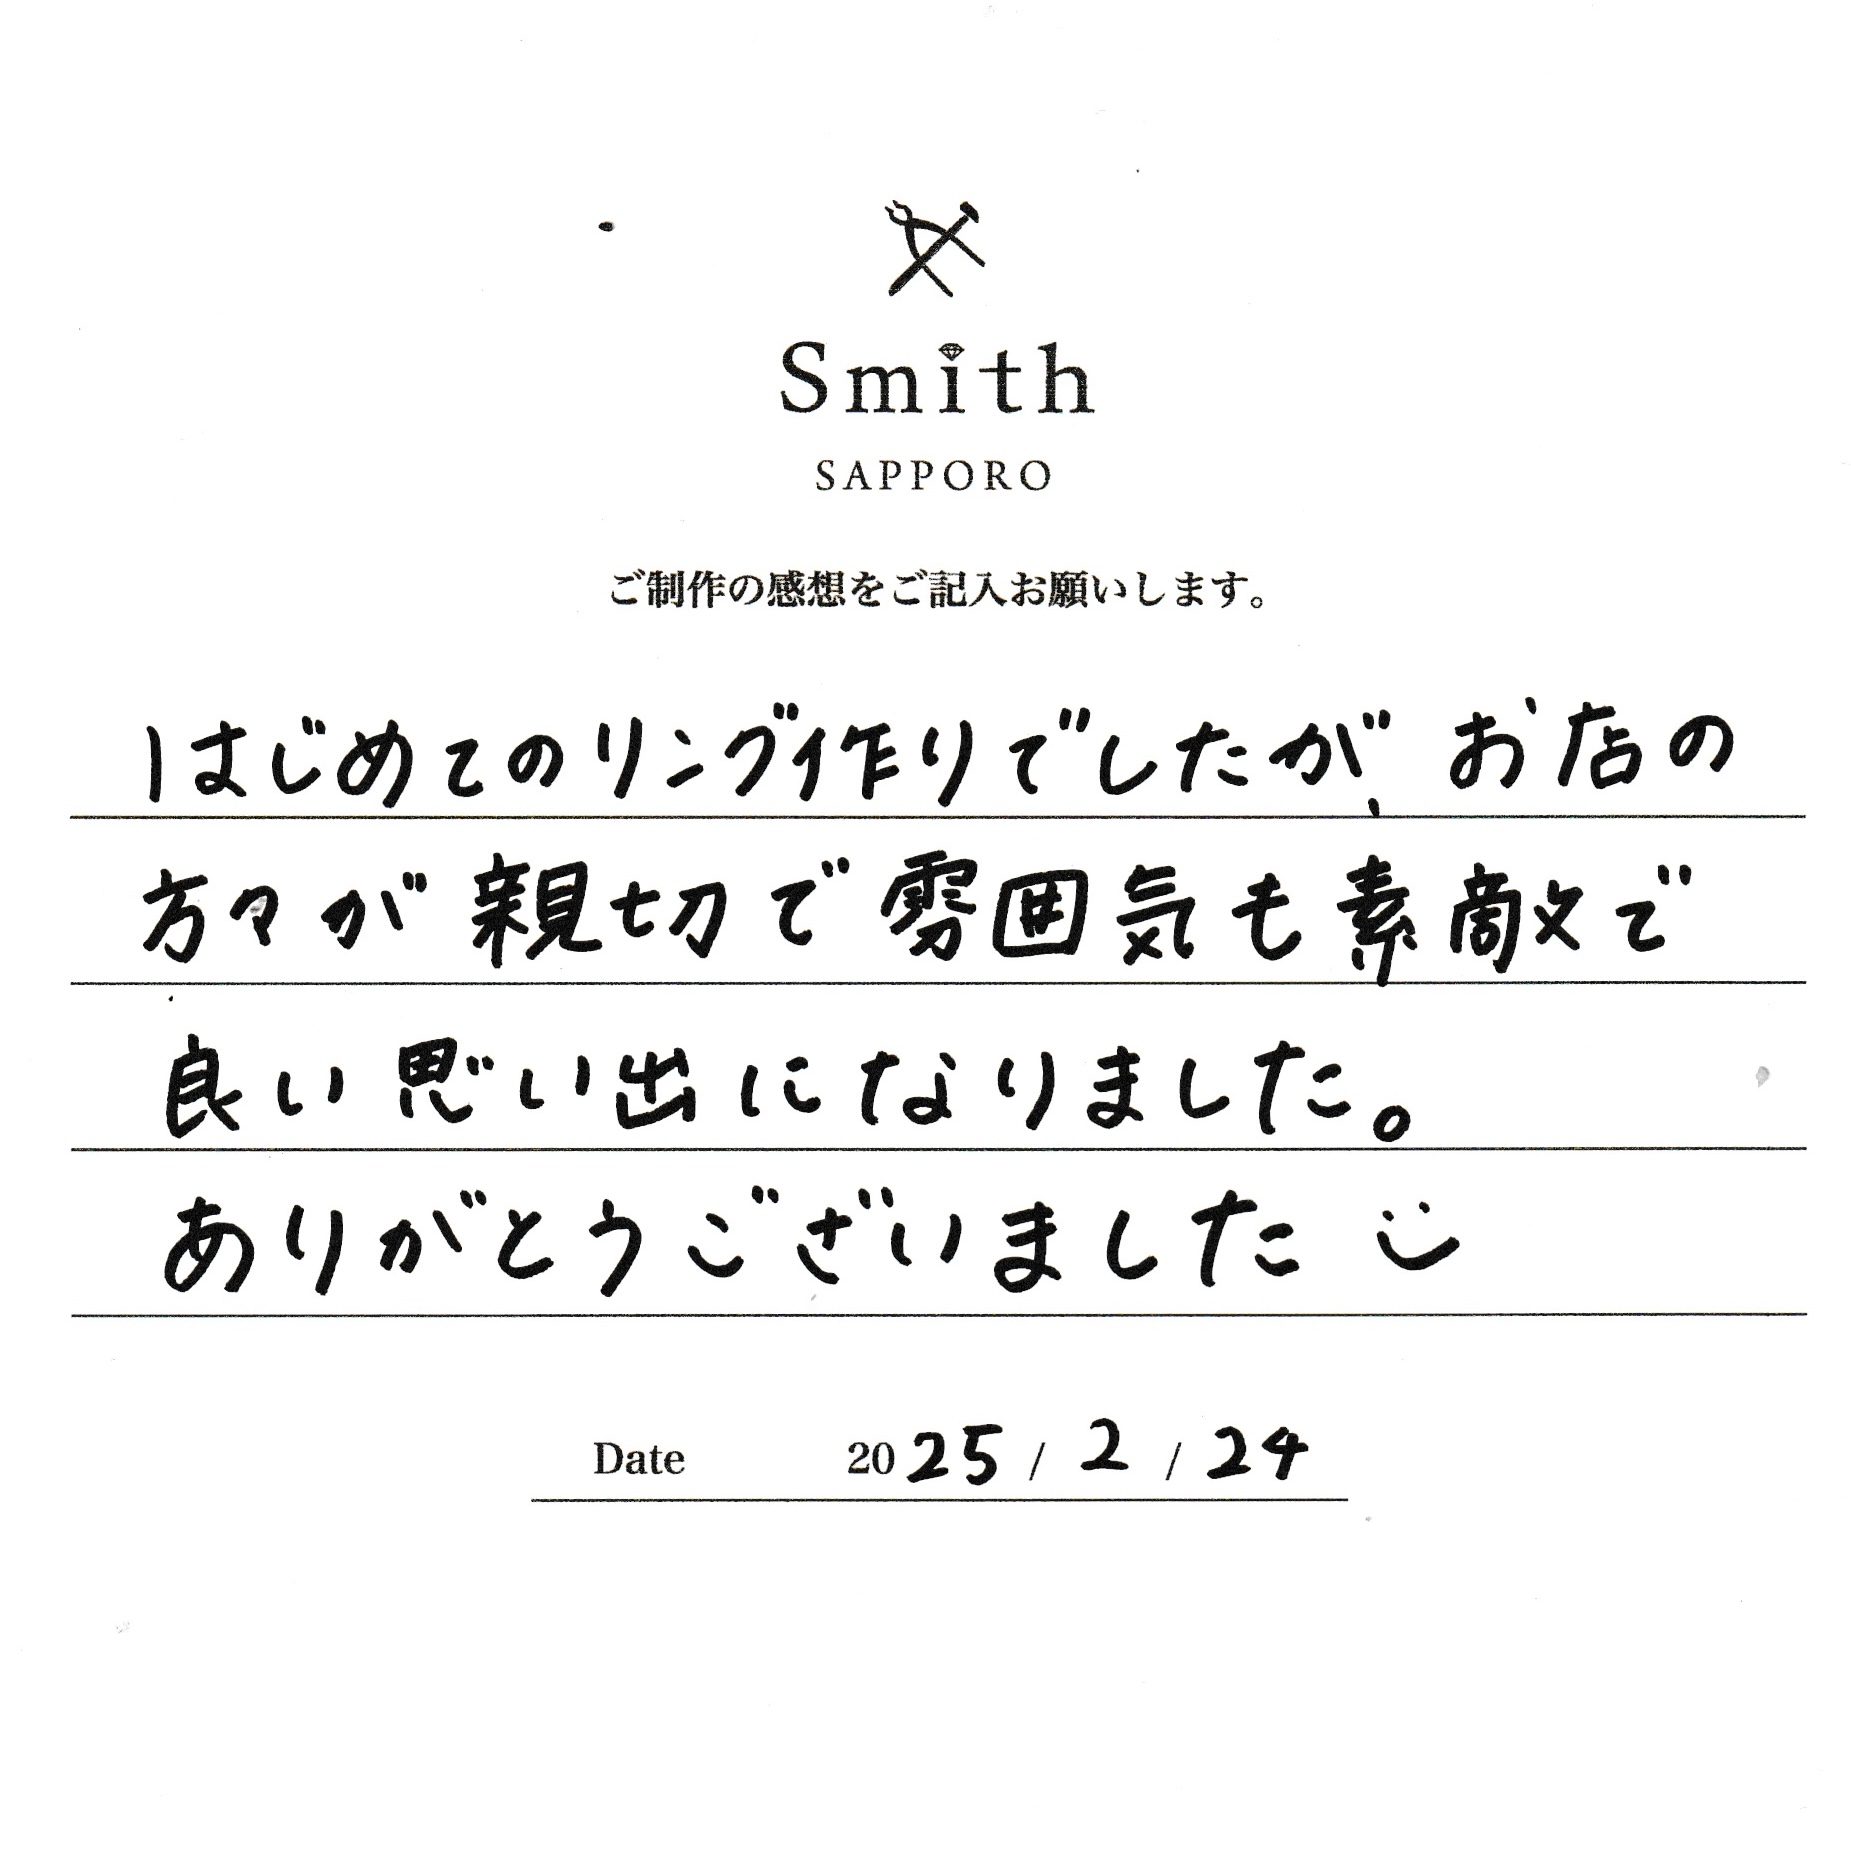 Smith
SAPPORO
ご制作の感想をご記入お願いします。
はじめてのリング作りでしたが、お店の
方々が親切で雰囲気も素敵で
良い思い出になりました。
ありがとうございました
Date 2025 / 2 / 24